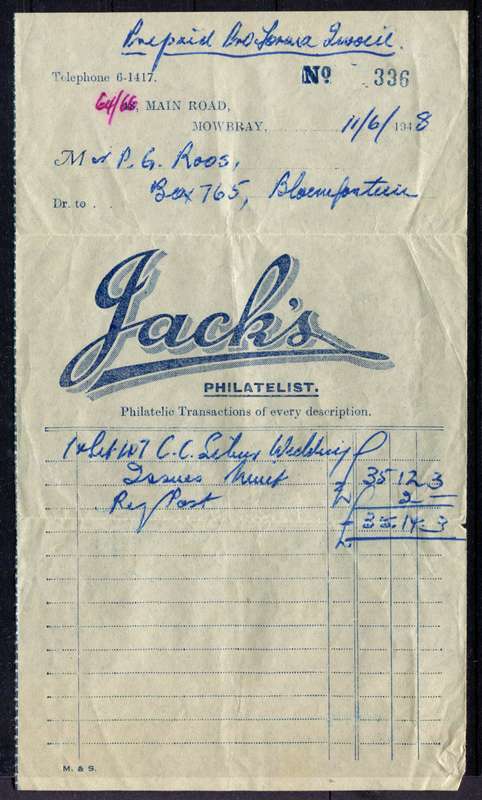 Prepaid Pro-forma Invoice.
Telephone 6-1417.
No 336
64/66, MAIN ROAD,
MOWBRAY, 11/6/1948
Mr P. G. Roos,
Dr. to Box 765, Bloemfontein
Jack's
PHILATELIST.
Philatelic Transactions of every description.
1 Set 107 C.C. Silver Wedding
Issues Mint £ 35 12 3
Reg Post 2 —
£ 35. 14. 3
M. & S.